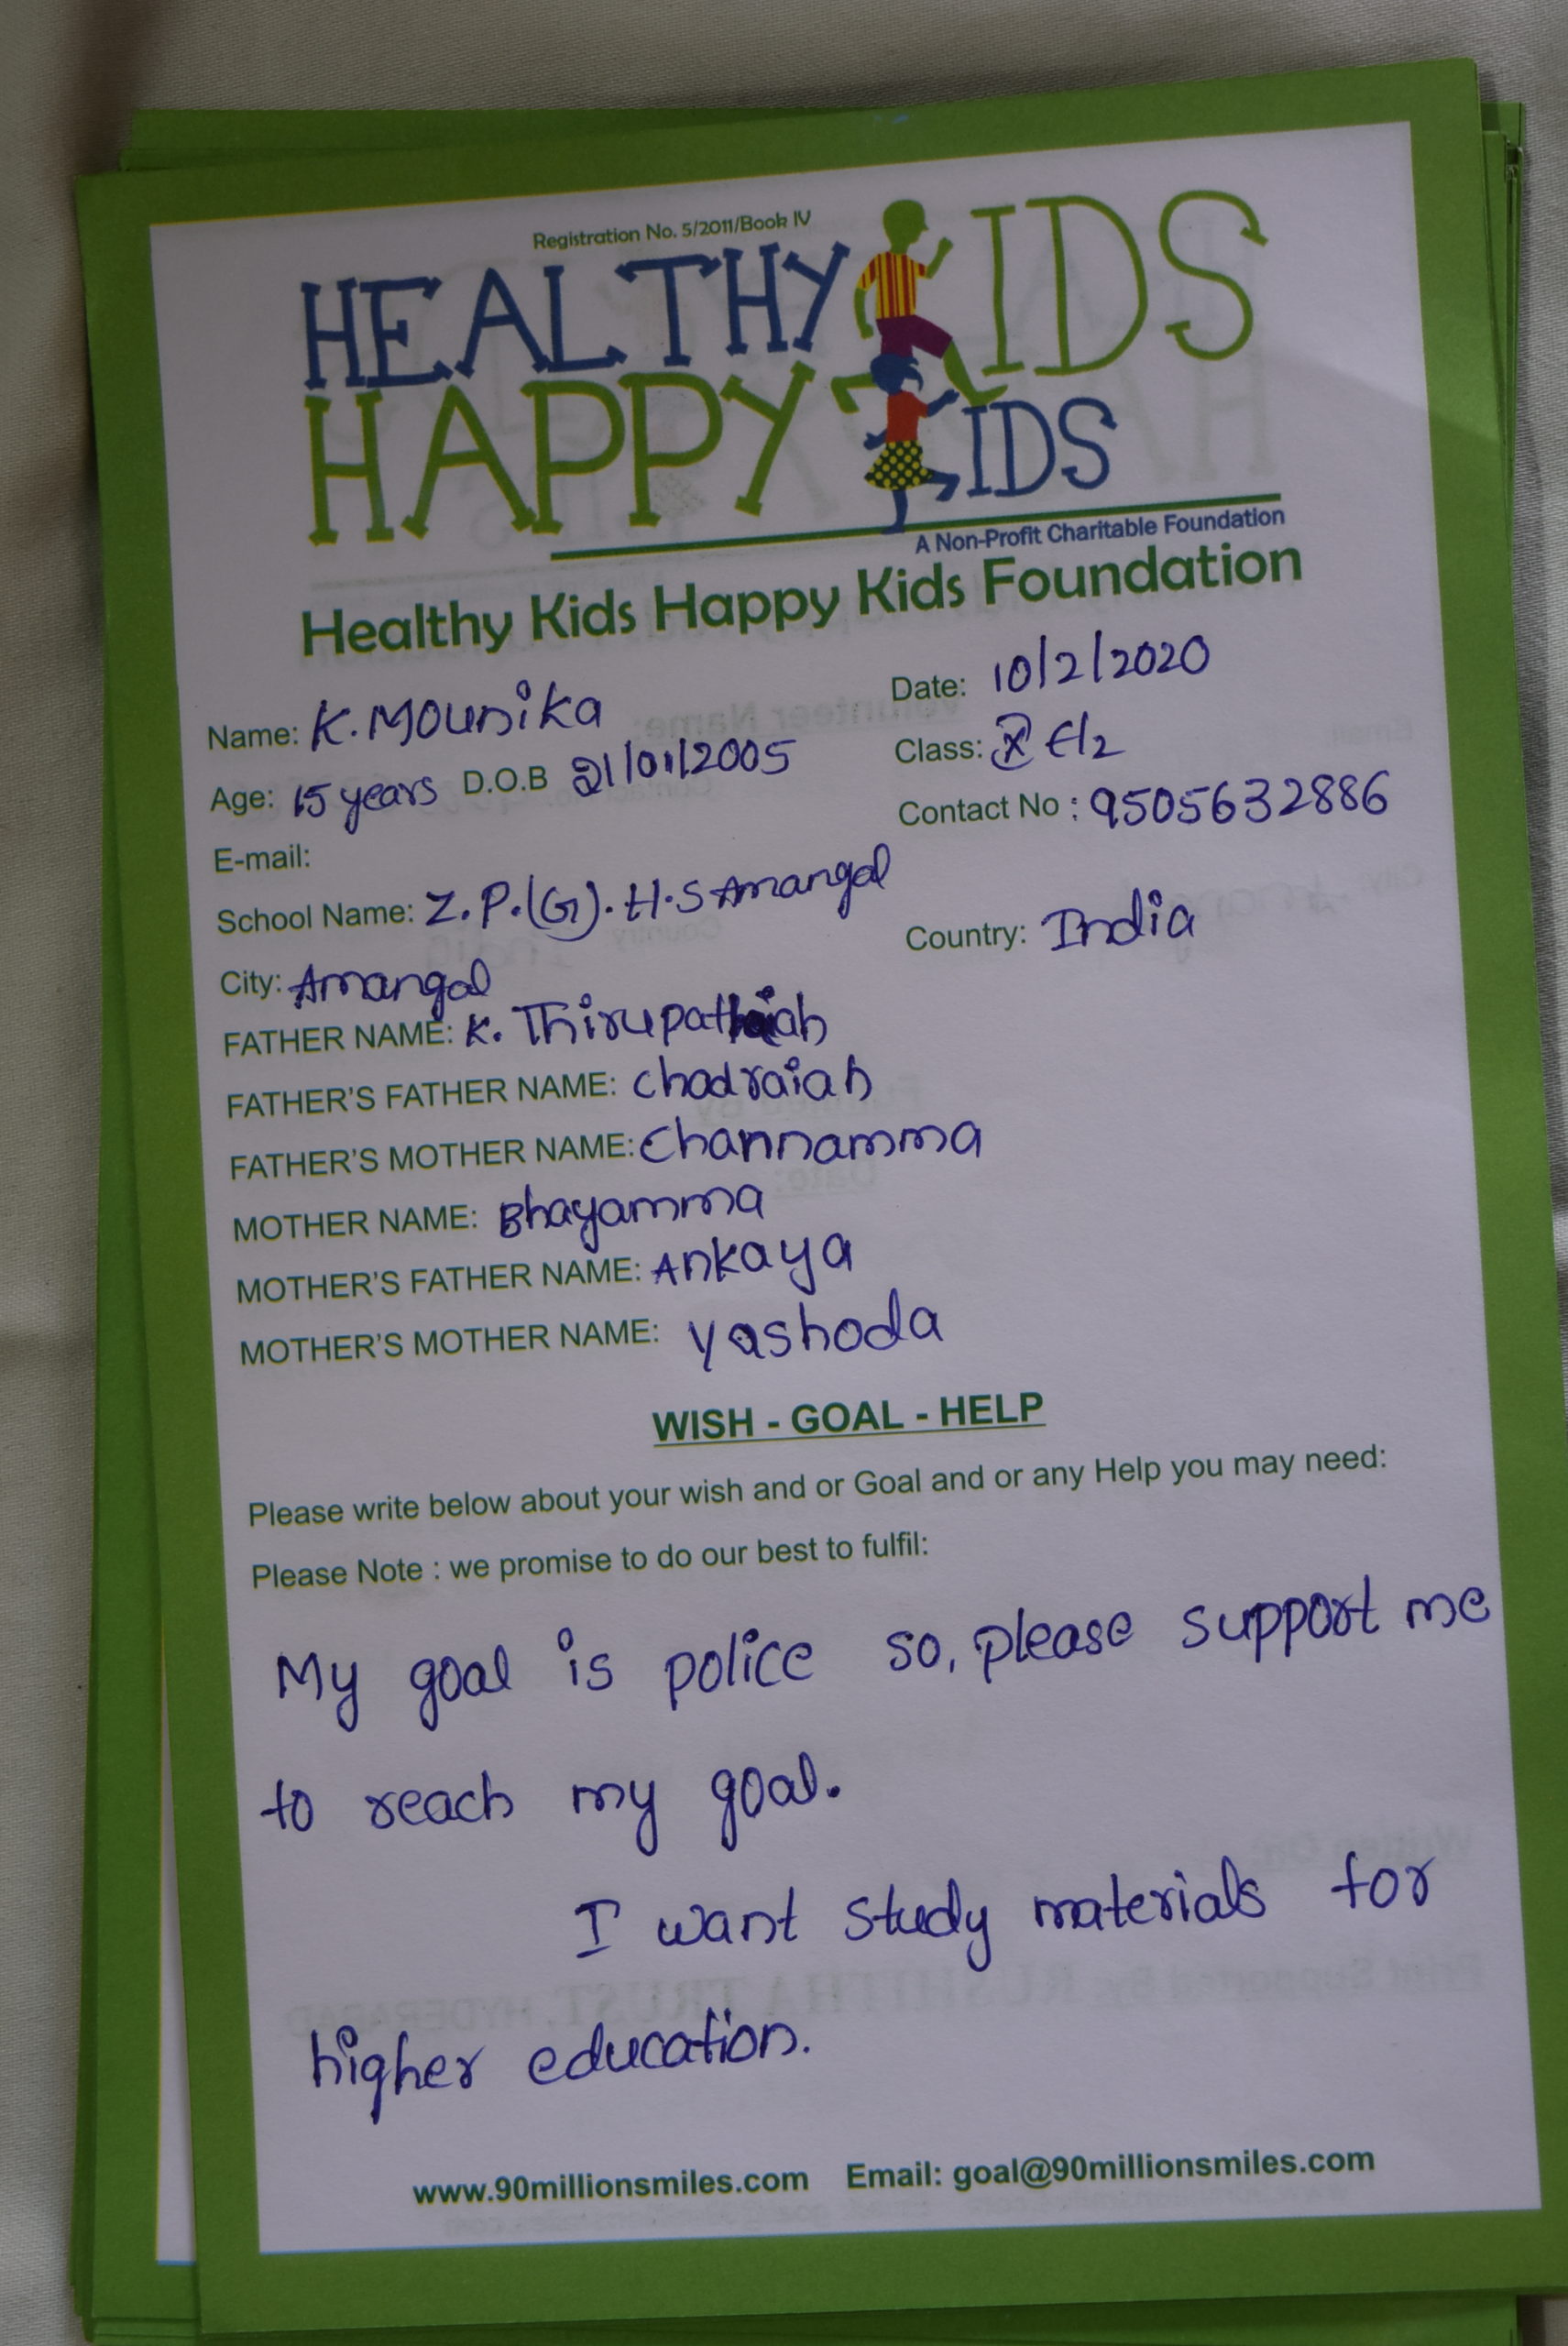 Registration No. 5/2011/Book IV
HEALTHY KIDS
HAPPY KIDS
A Non-Profit Charitable Foundation
Healthy Kids Happy Kids Foundation
Name: K. Mounika
Date: 10/2/2020
Age: 15 years D.O.B 21/01/2005
Class: X E/2
E-mail:
Contact No : 9505632886
School Name: Z.P.(G).H.S Amangal
City: Amangal
Country: India
FATHER NAME: K. Thirupathaiah
FATHER'S FATHER NAME: chadraiah
FATHER'S MOTHER NAME: Channamma
MOTHER NAME: Bhayamma
MOTHER'S FATHER NAME: Ankaya
MOTHER'S MOTHER NAME: yashoda
WISH - GOAL - HELP
Please write below about your wish and or Goal and or any Help you may need:
Please Note : we promise to do our best to fulfil:
My goal is police so, please support me
to reach my goal.
I want study materials for
higher education.
www.90millionsmiles.com Email: goal@90millionsmiles.com